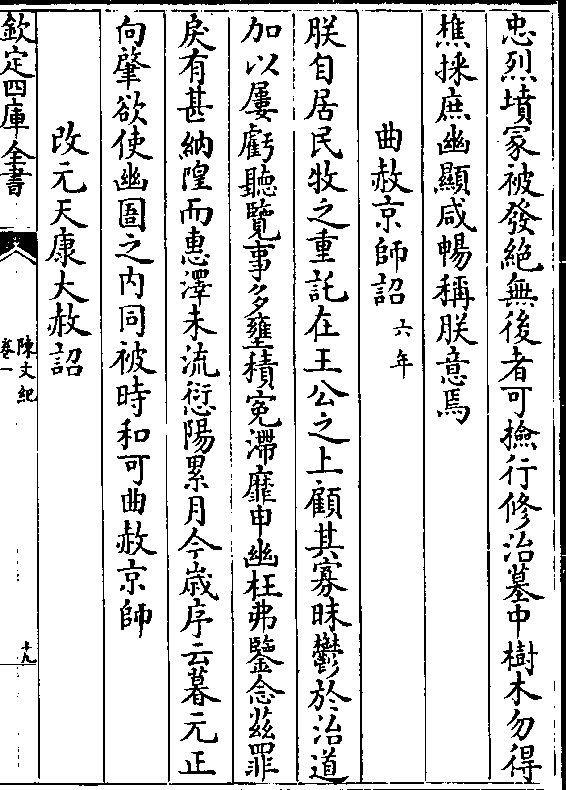 忠烈墳冢被發絶無後者可撿行修治墓中樹木勿得
樵採庶幽顯咸暢稱朕意焉
曲赦京師詔六年
朕自居民牧之重託在王公之上顧其寡昧鬱於治道
加以屢虧聽覽事多壅積寃滯靡申幽枉弗鑒念兹罪
戾有甚納隍而惠澤未流愆陽累月今歲序云暮元正
向肇欲使幽圄之内同被時和可曲赦京師
改元天康大赦詔
欽定四庫全書
陳文紀
卷一
十九